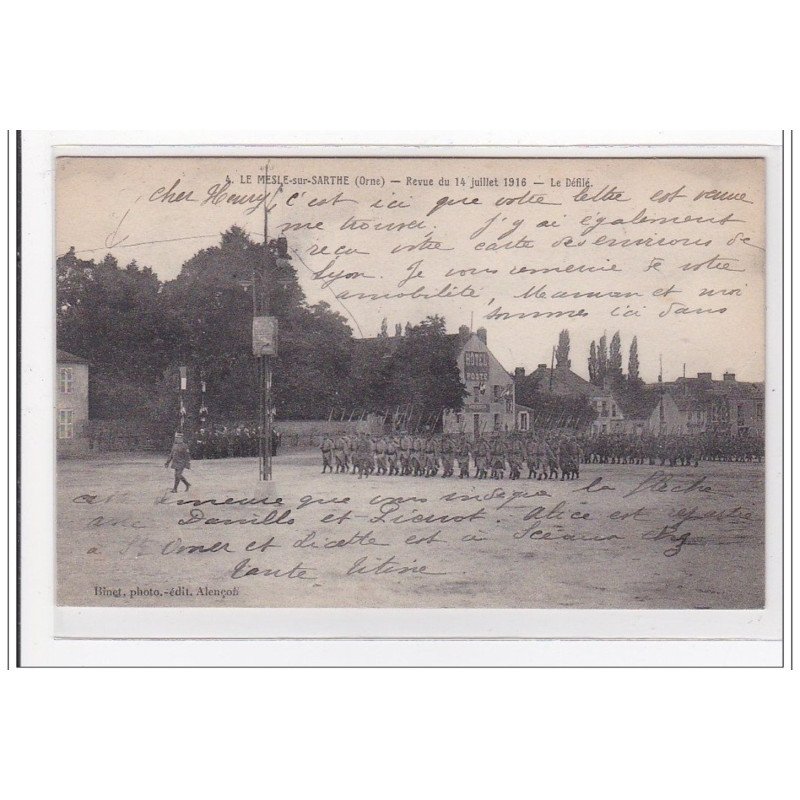 4. LE MESLE-sur-SARTHE (Orne) — Revue du 14 juillet 1916 — Le Défilé.
cher Henry, c'est ici que votre lettre est venue
me trouver. J'y ai également
reçu votre carte des environs de
Lyon. Je vous remercie de votre
amabilité, Maman et moi
sommes ici dans
HÔTEL
POSTE
que vous indique la flèche
avec et Pierrot. Alice est repartie
à St Omer et est à Sceaux
tante titine.
Binet, photo.-édit. Alençon